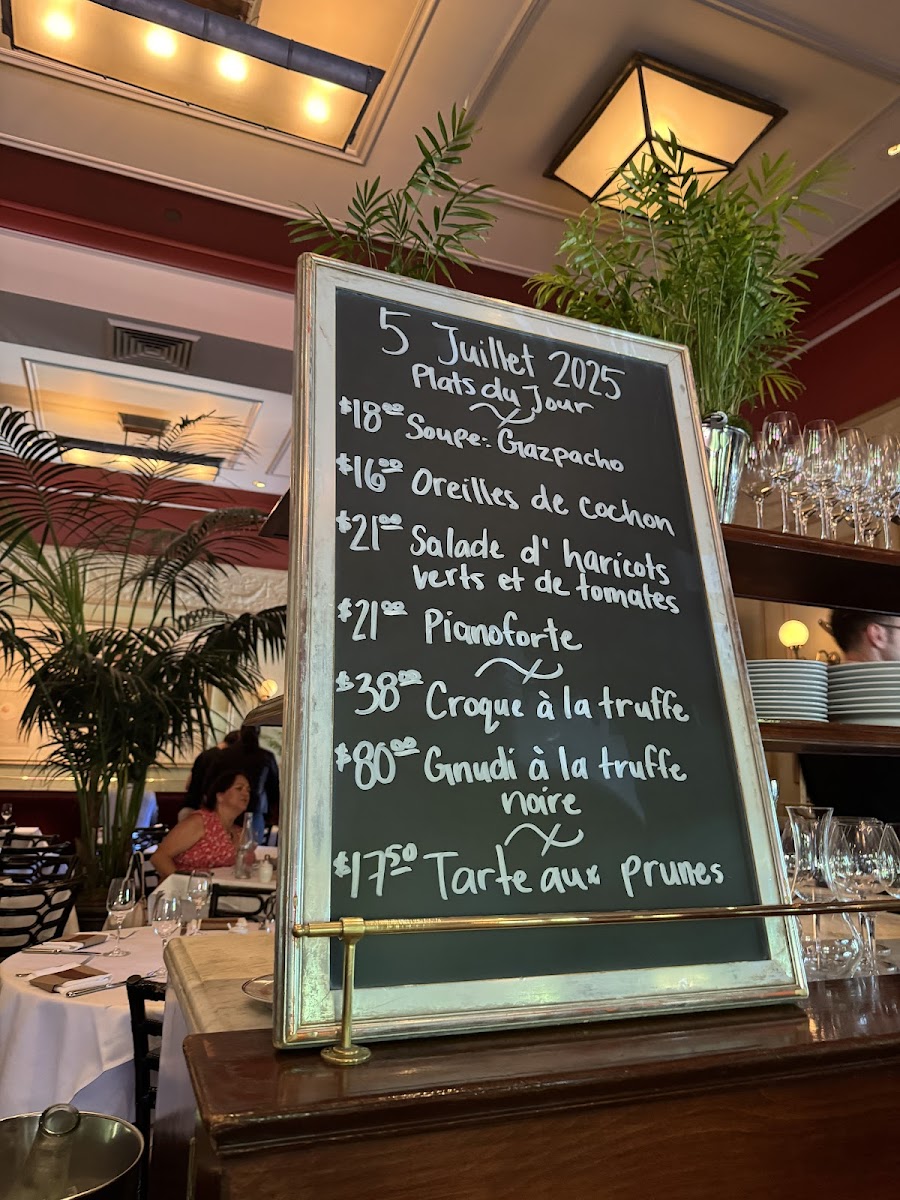 5 Juillet 2025
Plats du Jour
$18⁰⁰ Soupe: Gazpacho
$16⁰⁰ Oreilles de cochon
$21⁰⁰ Salade d' haricots
verts et de tomates
$21⁰⁰ Pianoforte
$38⁰⁰ Croque à la truffe
$80⁰⁰ Gnudi à la truffe
noire
$17⁵⁰ Tarte aux prunes